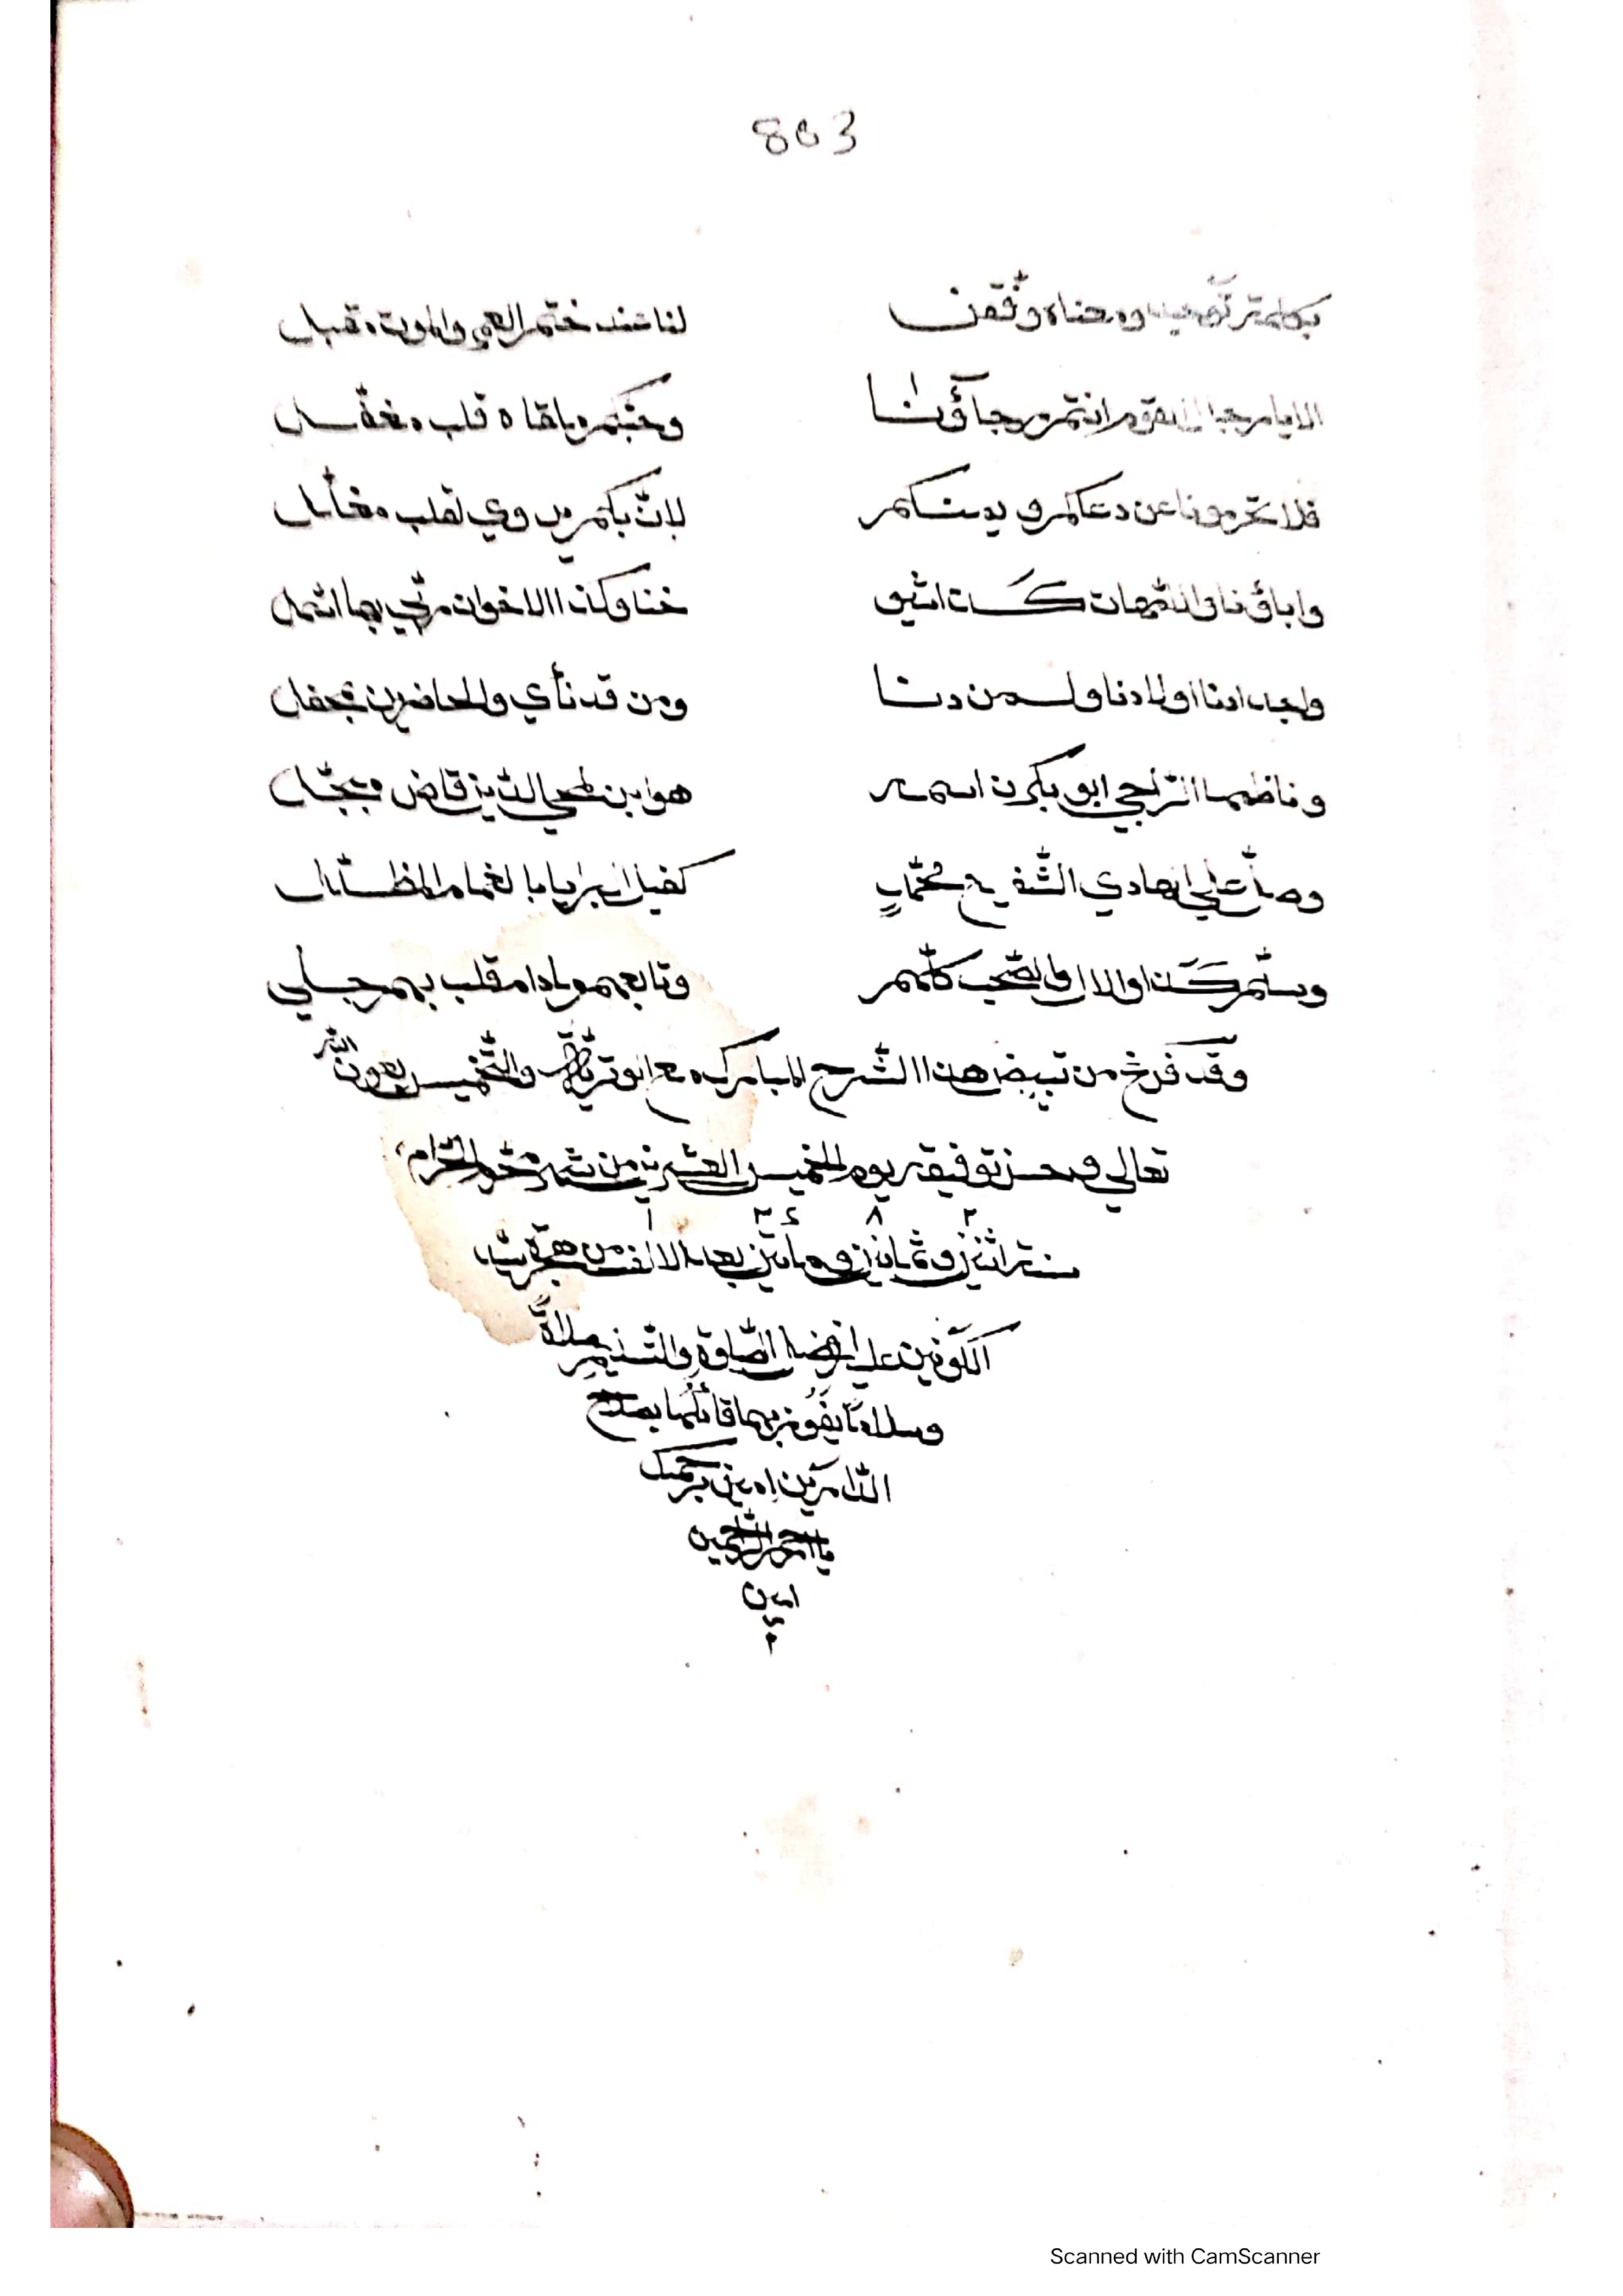 803
بكلمة توحيد ومعناه وفقن لنا عند ختم العمر والموت مقبل
الا يا رجال القوم انتم رجاؤنا وحبكم ما قاه قلب مغفل
فلا تحرمونا عن دعاكم ويمنكم لان بكم يروي لقلب
واباؤنا والامهات كذا اخي وكذا الاخوان
واجدادنا اولادنا ولمن دنا ومن قد نأي والحاضرين
وناظمها الراجي ابو بكرن اسمه هو ابن محي الدين قاض مبجل
وصل علي الهادي الشفيع محمد كفيل البرايا بالغمام المظلل
وسلم كذا والال والصحب كلهم وتابعهم ما دام قلب بهم جلي
وقد فرغ من تبييض هذا الشرح المبارك مع والتخميس بعون الله
تعالي وحسن توفيقه يوم الخميس العشرين من شهر محرم الحرام
٢ ٨ ١
سنة اثنين وثمانين وماتين بعد الالف من هجرة سيد
الكونين عليه افضل الصلوة والتسليم صلاة
وسلاما يفوز بهما قائلهما بصلاح
الدارين امين برحمتك
يا ارحم الراحمين
امين